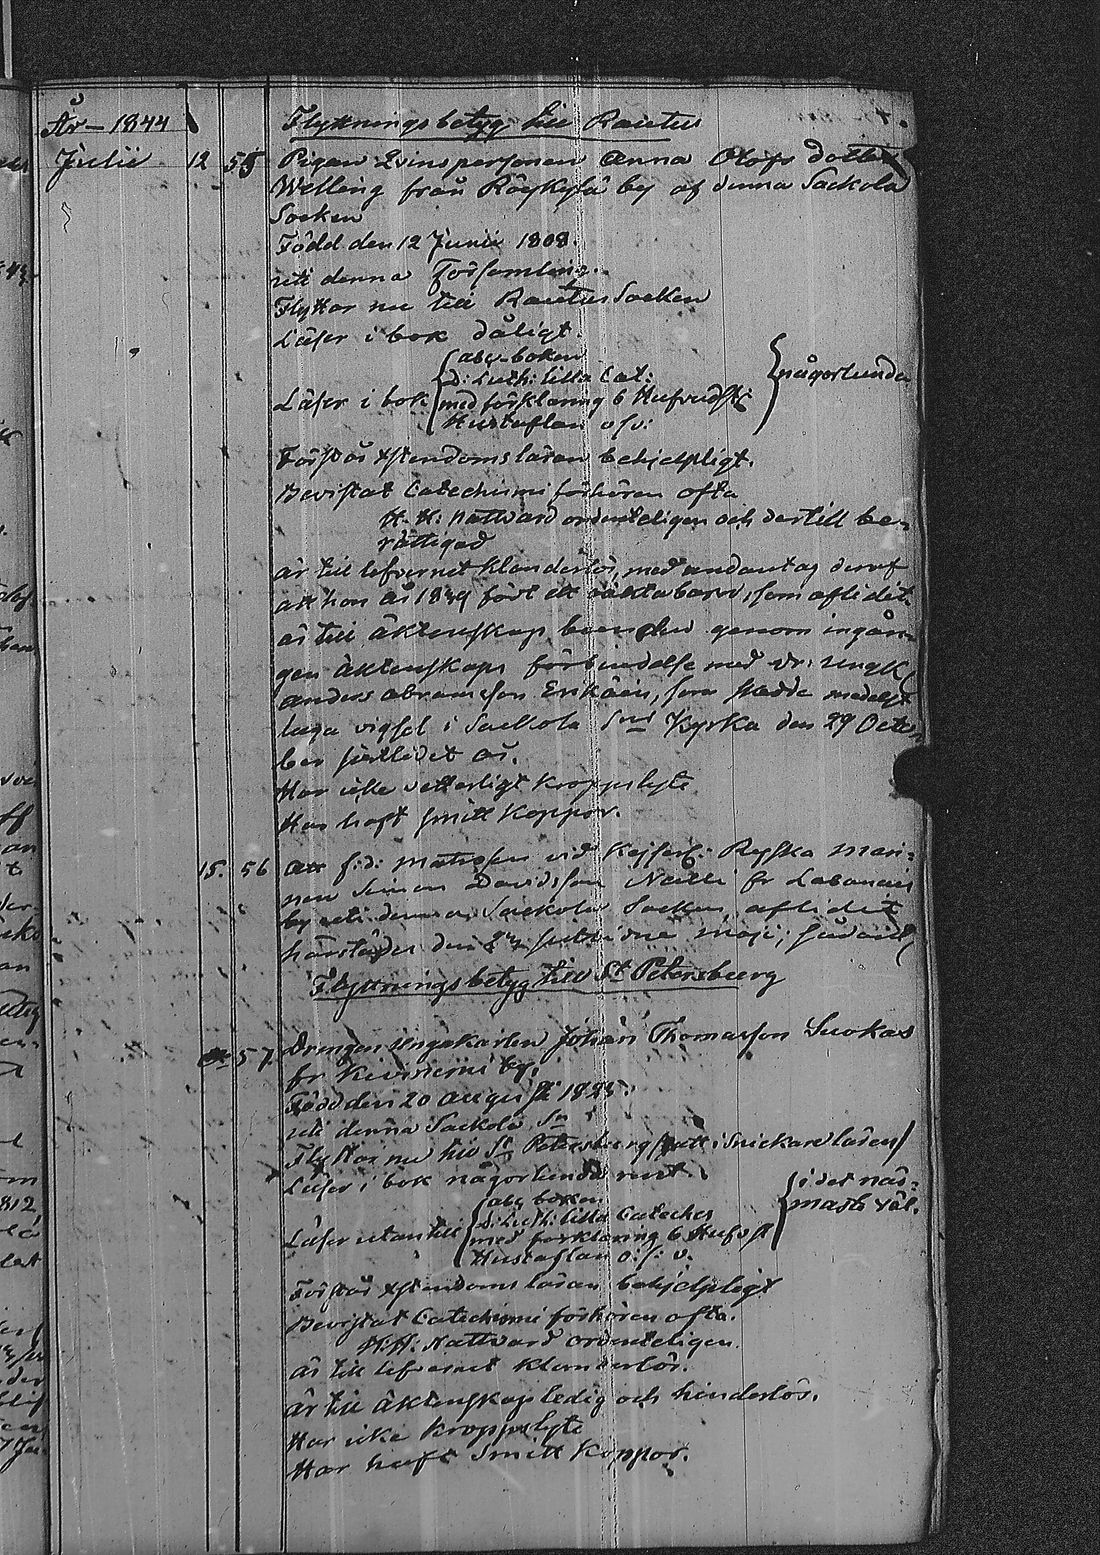 År – 1844
Flyttningsbetyg till Rautus
Julii 12 55 Pigan Qvinspersonen Anna Olofs dotter
Welling från Röykylä by af denna Sackola
Socken
Född den 12 Junii 1808.
uti denna Församling.
Flyttar nu till Rautus Socken
Läser i bok dåligt.
Läser i bok { abc-boken
D: Luth: lilla Cat:
med förklaring 6 Hufvudst:
Hustaflan o s v: } någorlunda
Förstår Xstendomsläran behjelpligt.
Bevistat Catechismi förhören ofta
H. H. Nattvard ordenteligen och dertill be-
rättigad
är till lefvernet klanderlös, med undantag deraf
att hon år 1839 födt ett oäkta barn, som aflidit.
är till äktenskap genom ingån-
gen äktenskaps förbindelse med Dr: ungk
Anders Abramsson Erikäin, som skedde medelst
laga vigsel i Sackola Sns Kyrka den 29 Octo-
ber sistledit år.
Har icke vetterligt kroppslyte
Har haft Smitt Koppor.
15. 56 Att f: d: Matrosen vid Kejserl: Ryska Mari-
nen Simon Davidsson Naelli fr Labanais
by uti denna Sackola Socken aflidit
härstädes den Maji;
Flyttningsbetyg till St Petersburg
57. Drengen Ungakarlen Johan Thomasson Suokas
fr Kiviniemi by.
Född den 20 Augusti 1825.
uti denna Sackola Sn
Flyttar nu till St Petersburg satt i Snickare läran
Läser i bok någorlunda rent.
Läser utantill { abc boken
D: Luth: lilla Cateches
med förklaring 6 Hufvst
Hustaflan o: s: v. } i det när-
maste väl.
Förstår Xstendomsläran behjelpligt
Bevistat Catechismi förhören ofta.
H: H: Nattvard ordenteligen
är till lefvernet klanderlös.
är till äktenskap ledig och hinderlös.
Har icke kroppslyte
Har haft Smitt Koppor.